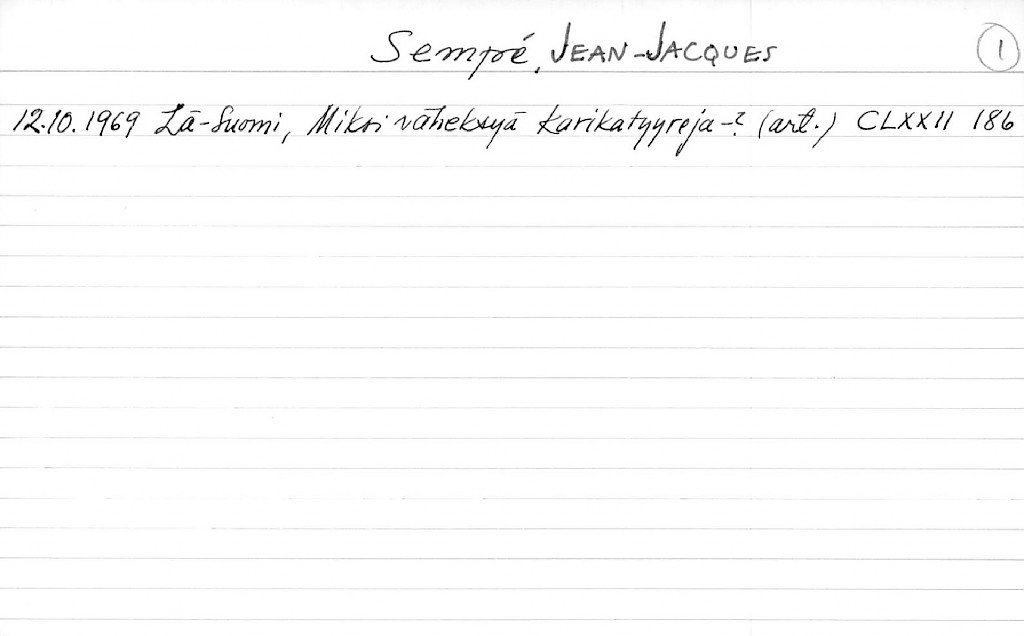 Sempé, JEAN-JACQUES 1
12.10.1969 Lä-Suomi, Miksi väheksyä karikatyyrejä-? (art.) CLXXII 186